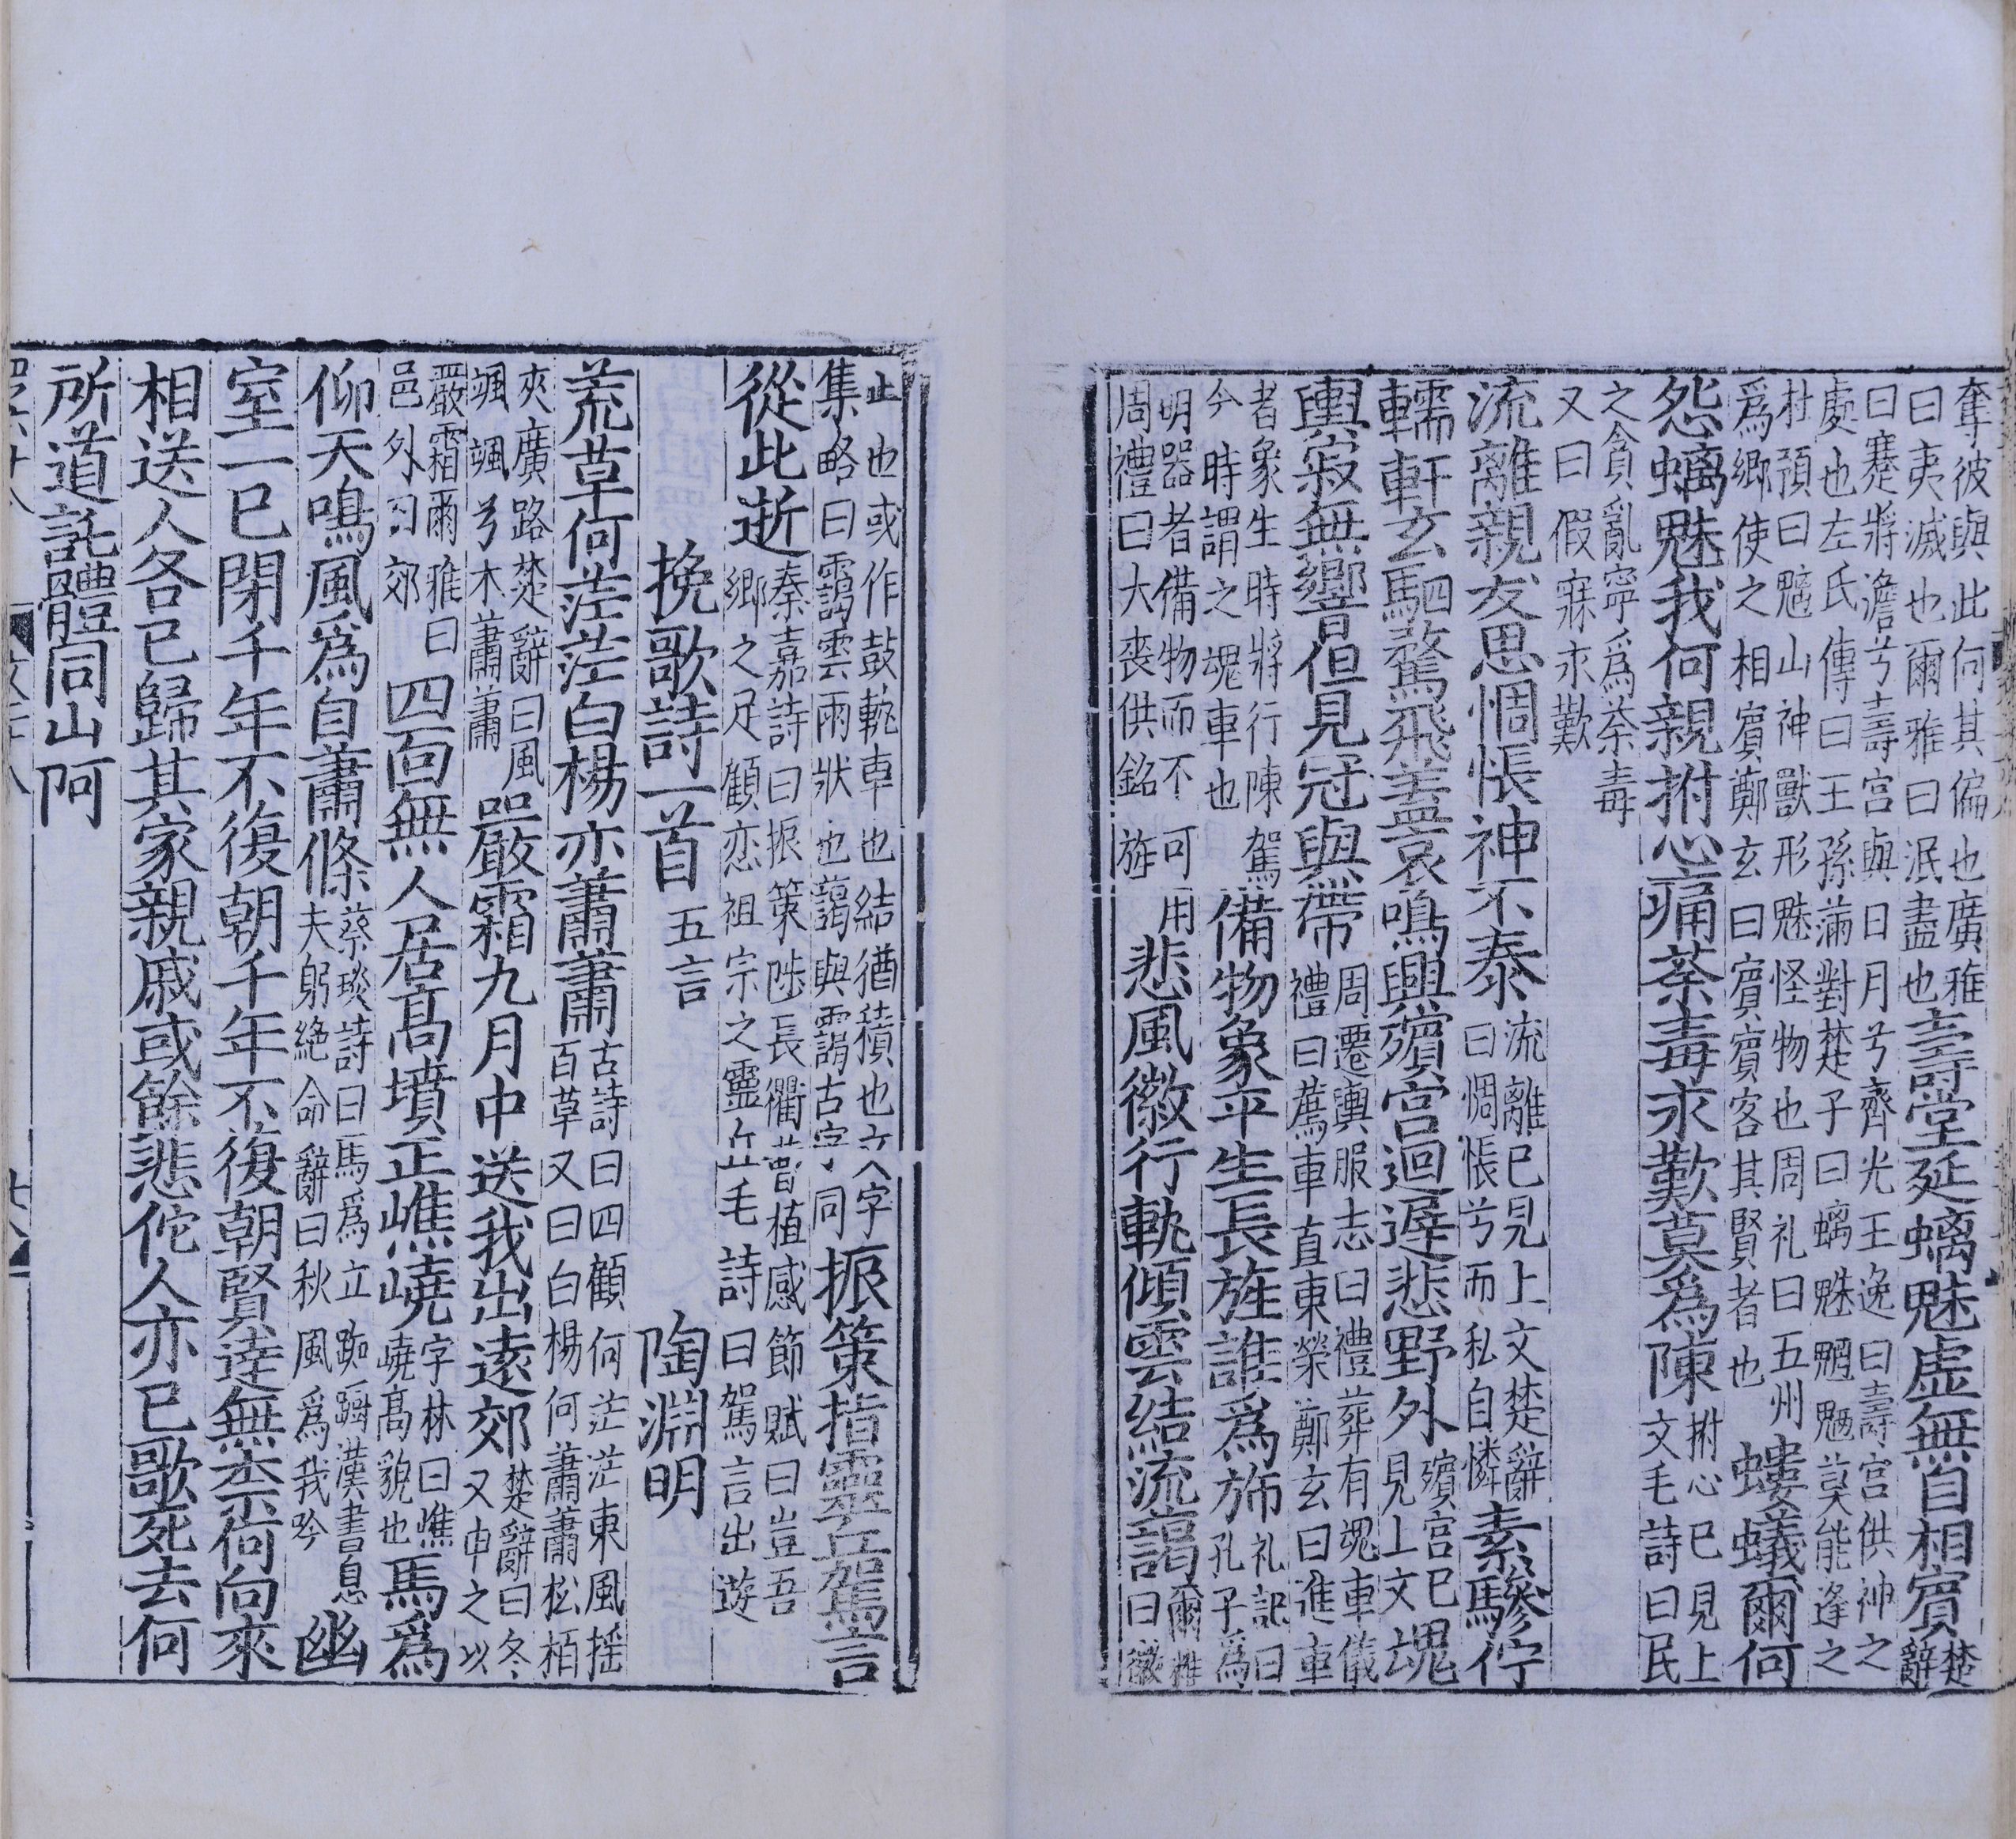 奪彼與此何其偏也廣雅
曰夷滅也爾雅曰泯盡也
壽堂延螭魅虛無自相賓
楚
辭
曰蹇將澹兮壽宮與日月兮齊光王逸曰壽宮供神之
處也左氏傳曰王孫滿對楚子曰螭魅魍魎莫能逢之
杜預曰魑山神獸形魅怪物也周礼曰五州
爲鄉使之相賓鄭玄曰賓賓客其賢者也
螻蟻爾何
怨螭魅我何親拊心痛荼毒永歎莫爲陳
拊心已見上
文毛詩曰民
之貪亂寧爲荼毒
又曰假寐永歎
流離親友思惆悵神不泰
流離已見上文楚辭
曰惆悵兮而私自憐
素驂佇
轜軒玄駟騖飛蓋哀鳴興殯宮迴遲悲野外
殯宮已
見上文
魂
輿寂無響但見冠與帶
周遷輿服志曰禮葬有魂車儀
禮曰薦車直東榮鄭玄曰進車
者象生時將行陳駕
今時謂之魂車也
備物象平生長旌誰爲旆
礼記曰
孔子爲
明器者備物而不可用
周禮曰大喪供銘旌
悲風徽行軌傾雲結流靄
爾雅
曰徽
止也或作鼓軌車也結猶積也文字
集略曰靄雲雨狀也藹與靄古字同
振策指靈丘駕言
從此逝
秦嘉詩曰振策陟長衢曹植感節賦曰豈吾
鄉之足顧恋祖宗之靈丘毛詩曰駕言出遊
挽歌詩一首
五言
陶淵明
荒草何茫茫白楊亦蕭蕭
古詩曰四顧何茫茫東風揺
百草又曰白楊何蕭蕭松栢
夾廣路楚辭曰風
颯颯兮木蕭蕭
嚴霜九月中送我出遠郊
楚辭曰冬
又申之以
嚴霜爾雅曰
邑外曰郊
四面無人居高墳正嶕嶢
字林曰嶕
嶢髙貌也
馬爲
仰天鳴風爲自蕭條
蔡琰詩曰馬爲立踟蹰漢書息
夫躬絶命辭曰秋風爲我吟
幽
室一已閉千年不復朝千年不復朝賢逹無柰何向來
相送人各已歸其家親戚或餘悲佗人亦已歌死去何
所道託體同山阿